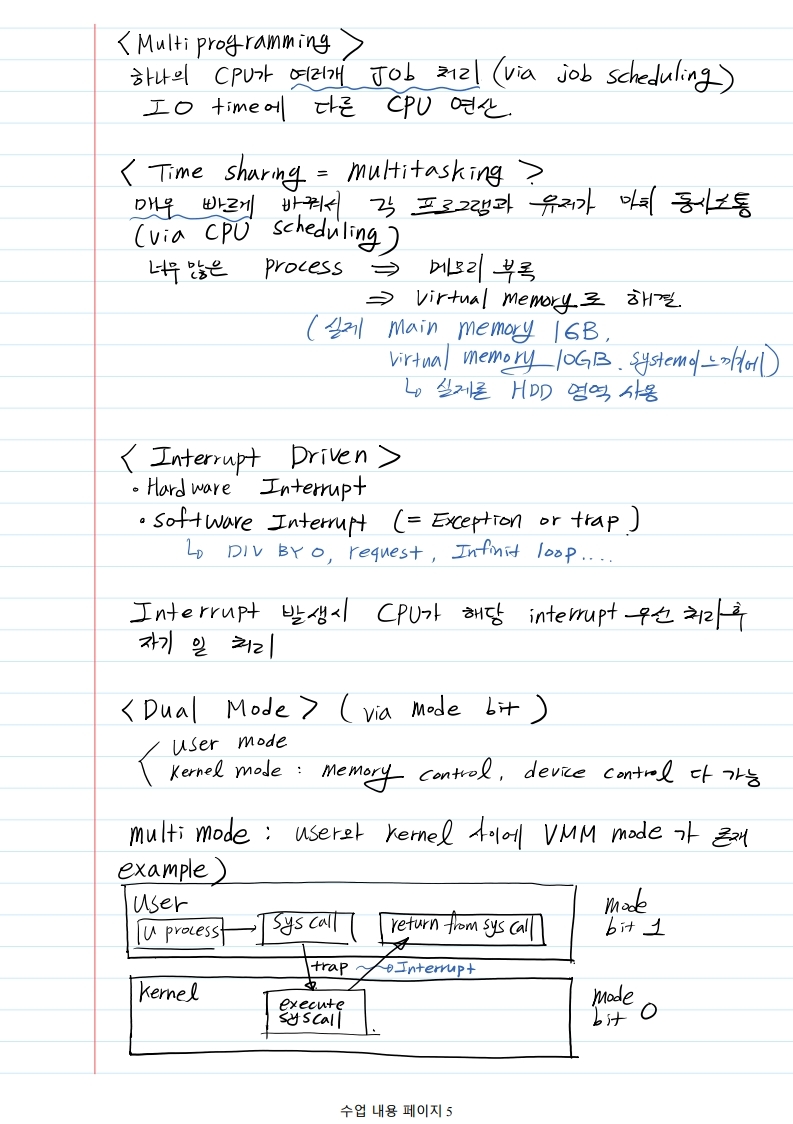 < Multi programming >
하나의 CPU가 여러개 Job 처리 (via job scheduling)
IO time에 다른 CPU 연산.
< Time sharing = multitasking >
매우 빠르게 바꿔서 각 프로그램과 유저가 마치 동시소통
(via CPU scheduling)
너무 많은 process ⇒ 메모리 부록
⇒ virtual memory로 해결.
(실제 main memory 1GB,
virtual memory 10GB. system이 느끼기에)
↳ 실제론 HDD 영역 사용
< Interrupt Driven >
• Hardware Interrupt
• Software Interrupt (= Exception or trap.)
↳ DIV BY 0, request, Infinit loop....
Interrupt 발생시 CPU가 해당 interrupt 우선 처리 후
자기 일 처리
< Dual Mode > ( via mode bit )
user mode
kernel mode : memory control, device control 다 가능
multi mode : user와 kernel 사이에 VMM mode 가 존재
example)
User
U process → sys call
return from sys call
mode bit 1
trap → Interrupt
kernel
execute
sys call
mode bit 0
수업 내용 페이지 5